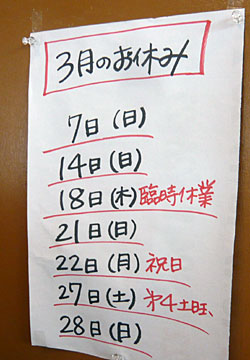 3月のお休み
7日(日)
14日(日)
18日(木)臨時休業
21日(日)
22日(月)祝日
27日(土)第4土旺、
28日(日)